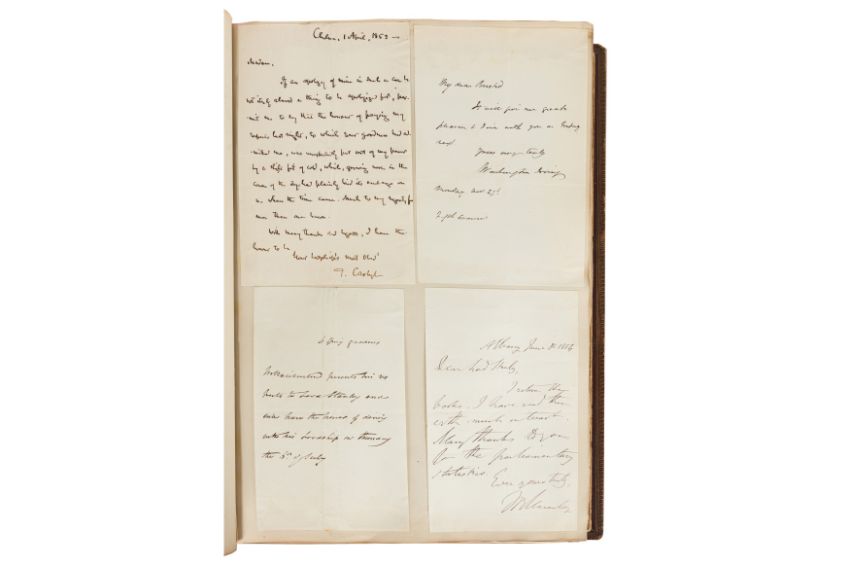 Chelsea, 1 April, 1853 —
Madam,
If an apology of mine in such a case be
not itself almost a thing to be apologized for, per-
mit me to say that the honour of paying my
respects last night, to which your goodness had ad-
mitted me, was unluckily put out of my power
by a fit of cold, which, growing more in the
course of the day had plainly
when the time came. Much to my regret, for
more than one
With many thanks and regrets, I have the
honour to be
Your Ladyship's most obdt
T. Carlyle
My dear
It will give me great
pleasure to dine with you on Tuesday
next
Yours very truly
Washington Irving
Monday,
Grosvenor
Mr presents his re
spects to Lord Stanley and
will have the honor of dining
with his Lordship on Thursday
the 3d of July
Albany June 8 18
Dear Lord Stanley,
I return the
books. I have read them
with much interest.
Many thanks to you
for the parliamentary
statistics.
Ever yours truly,